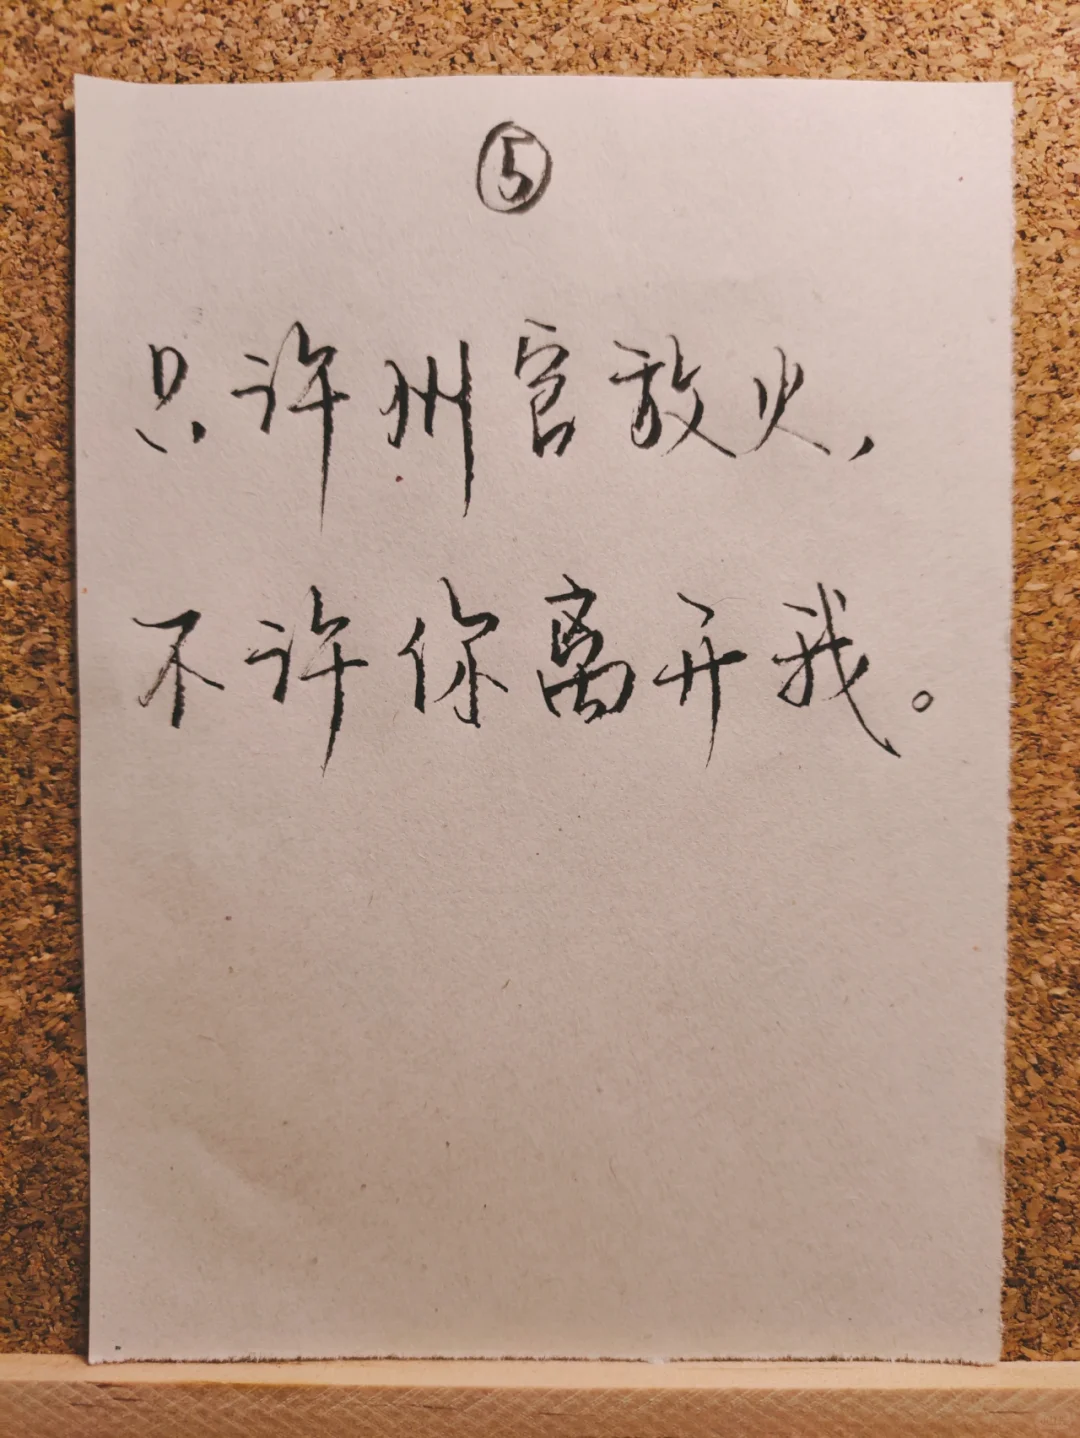 ⑤
只许州官放火,
不许你离开我。